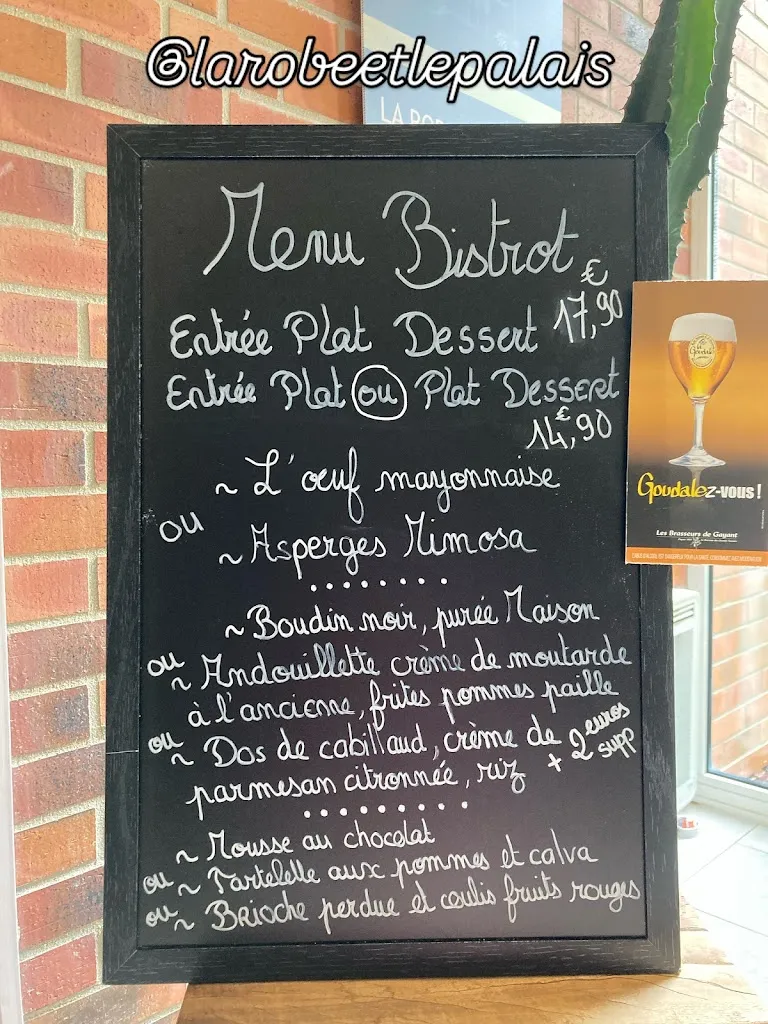 @larobeetlepalais
Menu Bistrot
Entrée Plat Dessert 17,90€
Entrée Plat ou Plat Dessert
14,90€
~ L'œuf mayonnaise
ou
~ Asperges Mimosa
........
~ Boudin noir, purée Maison
ou
~ Andouillette crème de moutarde
à l'ancienne, frites pommes paille
ou
~ Dos de cabillaud, crème de
parmesan citronnée, riz + 2 euros supp
.........
~ Mousse au chocolat
ou ~ Tartelette aux pommes et calva
ou ~ Brioche perdue et coulis fruits rouges
Goudalez-vous !
Les Brasseurs de Gayant